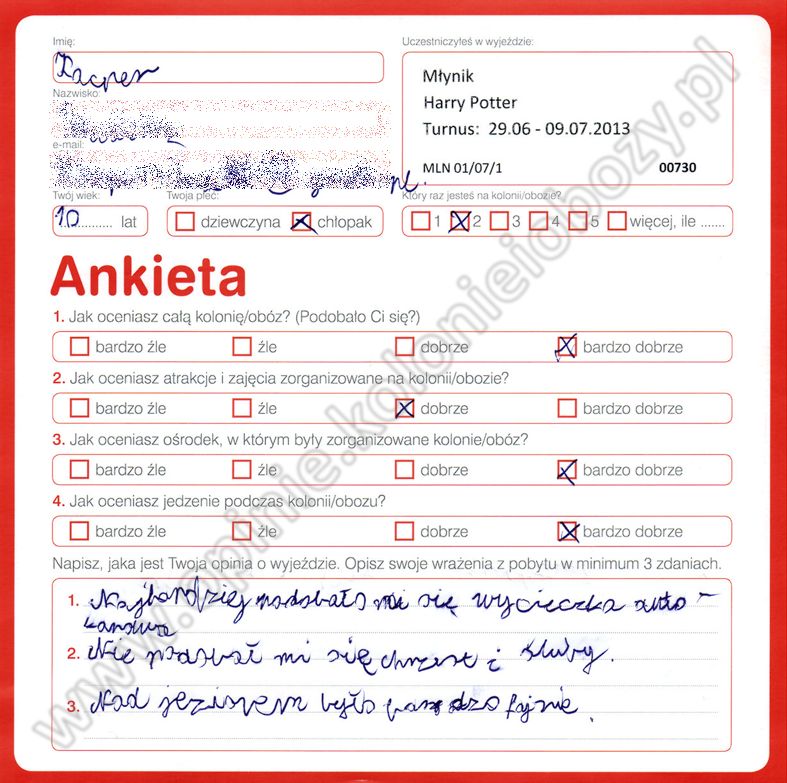 Imię:
Kacper
Uczestniczyłeś w wyjeździe:
Młynik
Harry Potter
Turnus: 29.06 - 09.07.2013
MLN 01/07/1 00730
Nazwisko:
e-mail:
pl.
Twój wiek: Twoja płeć: Który raz jesteś na kolonii/obozie?
10 lat dziewczyna chłopak 1 2 3 4 5 więcej, ile .......
Ankieta
1. Jak oceniasz całą kolonię/obóz? (Podobało Ci się?)
bardzo źle źle dobrze bardzo dobrze
2. Jak oceniasz atrakcje i zajęcia zorganizowane na kolonii/obozie?
bardzo źle źle dobrze bardzo dobrze
3. Jak oceniasz ośrodek, w którym były zorganizowane kolonie/obóz?
bardzo źle źle dobrze bardzo dobrze
4. Jak oceniasz jedzenie podczas kolonii/obozu?
bardzo źle źle dobrze bardzo dobrze
Napisz, jaka jest Twoja opinia o wyjeździe. Opisz swoje wrażenia z pobytu w minimum 3 zdaniach.
1. Najbardziej podobało mi się wycieczka auto-
karowa
2. Nie podobał mi się chrzest i śluby.
3. Nad jeziorem było bardzo fajnie.
www.opinie.kolonieiobozy.pl